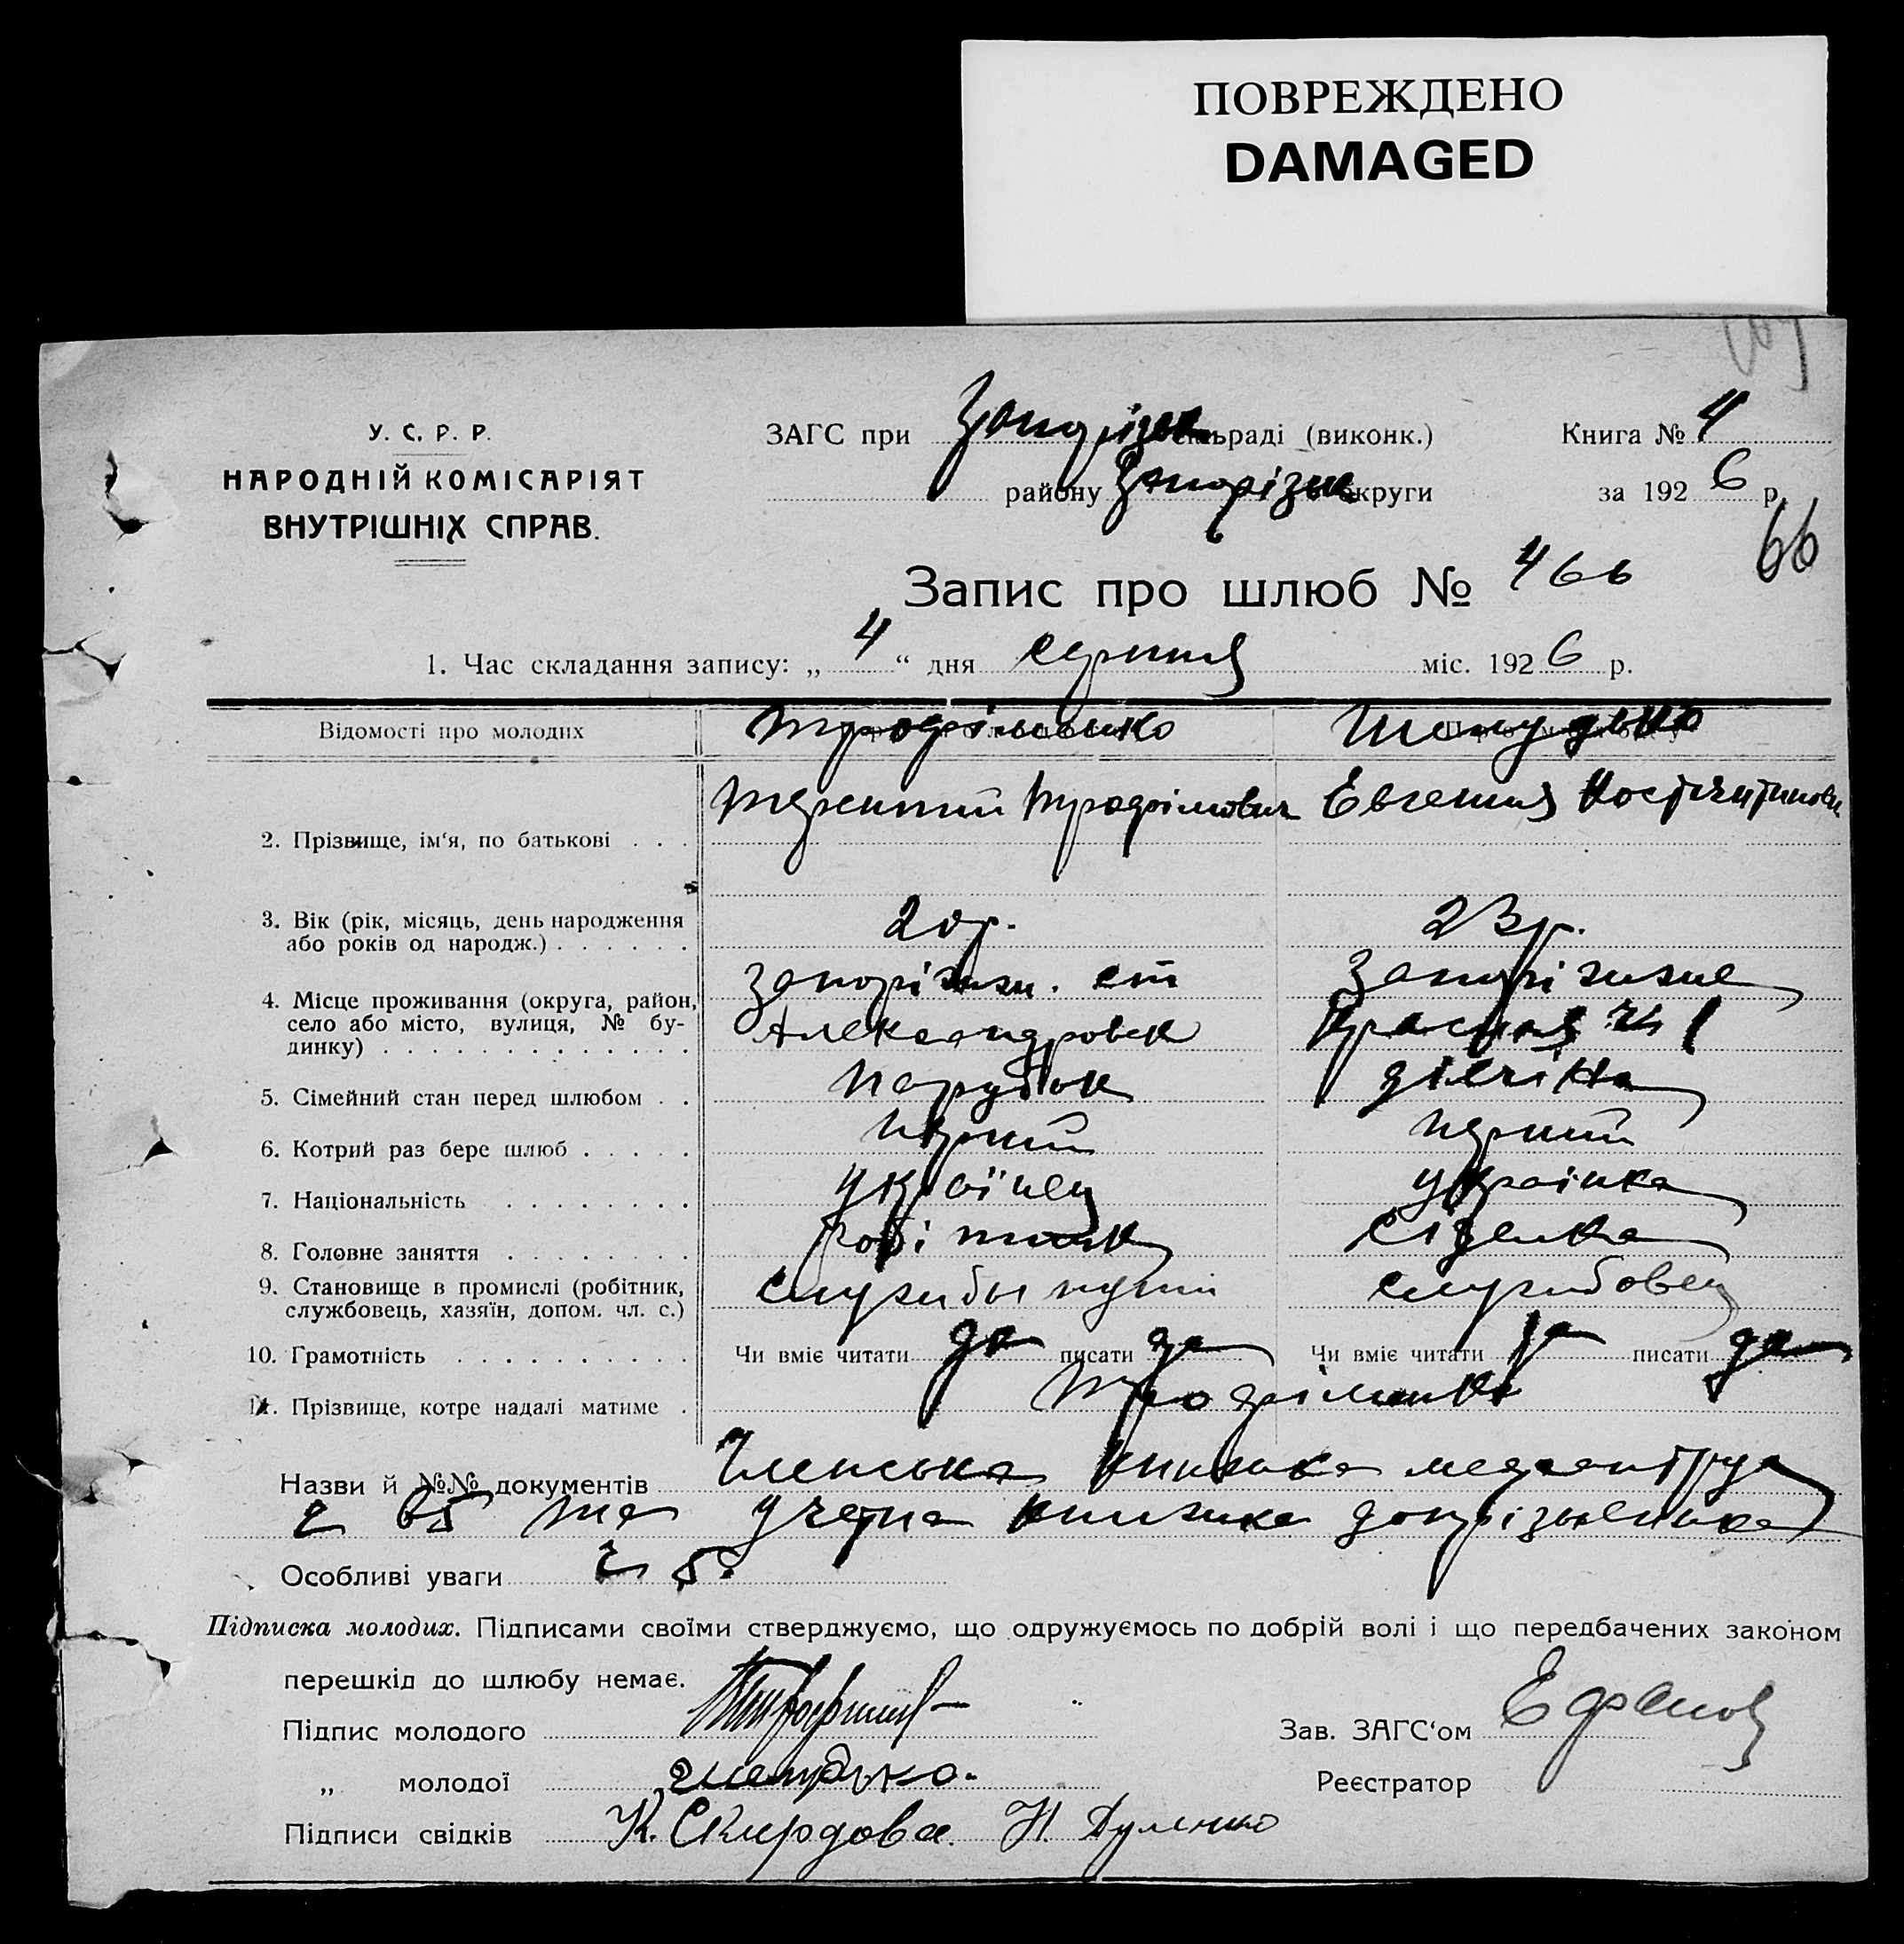 ПОВРЕЖДЕНО
DAMAGED
У. С. Р. Р.
НАРОДНІЙ КОМІСАРІЯТ
ВНУТРІШНІХ СПРАВ.
ЗАГС при раді (виконк.)
району округи
Книга № 4
за 192 6 р.
66
Запис про шлюб № 466
1. Час складання запису: „ 4 “ дня серпня міс. 192 6 р.
Відомості про молодих Трофіменко
2. Прізвище, ім‘я, по батькові . . . Терентий Трофімович Евгения
3. Вік (рік, місяць, день народження
або років од народж.) . . . . . . 20 р. 23 р.
4. Місце проживання (округа, район,
село або місто, вулиця, № бу-
динку) . . . . . . . . . . . . .
5. Сімейний стан перед шлюбом . . парубок дівчина
6. Котрий раз бере шлюб . . . . . перший перший
7. Національність . . . . . . . . українец українка
8. Головне заняття . . . . . . . . робітник сіделка
9. Становище в промислі (робітник,
службовець, хазяїн, допом. чл. с.) службы путі службовец
10. Грамотність . . . . . . . . . . Чи вміє читати да писати да Чи вміє читати да писати да
11. Прізвище, котре надалі матиме . Трофіменко
Назви й №№ документів Членська книжка
та учетна книжка допризьвника
Особливі уваги
Підписка молодих. Підписами своїми стверджуємо, що одружуємось по добрій волі і що передбачених законом
перешкід до шлюбу немає.
Підпис молодого
Зав. ЗАГС‘ом
„ молодої
Реєстратор
Підписи свідків К. Скирдова. Н. Дуленко